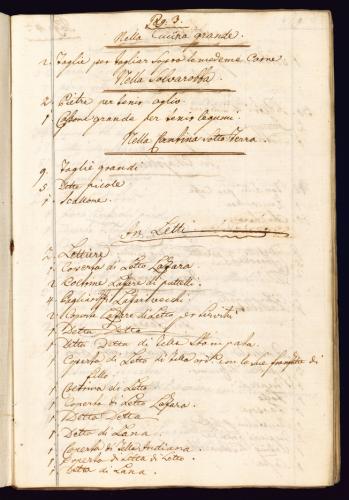 Pag. 3.
Nella Cucina grande.
2. Taglie per tagliar sopra le medeme Carne
Nella Salvarobba.
2. Pietre per tenir aglio.
1. Cassone grande per tenir legumi.
Nella Cantina sotto Terra.
9. Taglie grandi
5. Dette picole
1. Scallone.
In Letti
7. Lettiere
1. Coverta di Letto
2. Coltrone di putelli.
4.
2. Coperte di Letto, da servitù
1. Detta Detta
1. Detta Detta di Tella Stampata.
Coperta di Letto di Tella con le sue frangie di
1. fillo.
1. Coltrina di Letto.
1. Coperta di Letto
1. Detta Detta
1. Detto di Lana.
1. Coperta di Tella Indiana.
1. Coperta di Letto
1. di Lana.